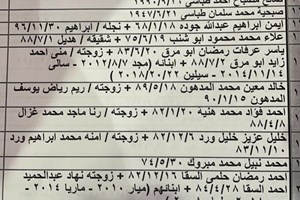 صبحية محمد سلمان طباسي ١٩٤٧/٦/٢١
ايمن ابراهيم عبدالله جوده ٦٨/١/١٨ + نجله / ابراهيم ٩٦/١١/٣٠
علاء محمد محمود ابو شنب ٧٥/٦/١٩ + شقيقته / هديل ٨٨/٧/١
ياسر عرفات رمضان ابو مرق ٨٣/٦/٢٠ + زوجته / منى احمد
زايد ابو مرق ٨٨/٧/٢ + ابنائه (مجد ٢٠١٢/٨/٧ - سالي
٢٠١٤/١١/١٤ - سيلين ٢٠١٨/٢٠/٢٢)
خالد معين محمد المدهون ٨٩/٧/٢١ + زوجته / ريم رياض يوسف
المدهون ٩٠/١/١٥
احمد فؤاد محمد هنية ٨٢/١/٢٠ + زوجته / رنا ماجد محمد غزال
٨٨/٤/٨
خليل عزيز خليل ورد ٨٢/١٢/٦ + زوجته / امنه محمد ابراهيم ورد
٨٣/١١/١٠
محمد نبيل محمد مبروك ٧٤/٥/٣٠
احمد رمضان حلمي السقا ٨٢/١٢/١٦ + زوجته نهاد عبدالحميد
احمد السقا ٨٤/٤/٢٨ + ابنائهم (ميار ٢٠١٠ - ماريا ٢٠١٤ -